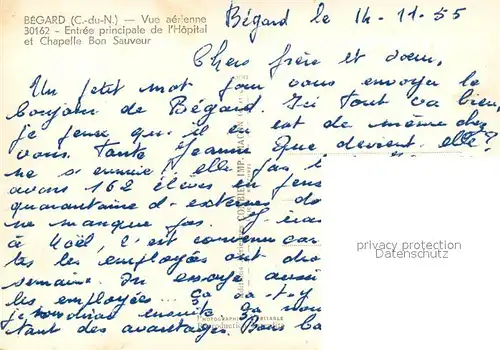 BÉGARD (C.-du-N.) — Vue aérienne
30162 - Entrée principale de l'Hôpital
et Chapelle Bon Sauveur
Bégard le 14-11-55
Chers frère et soeur,
Un petit mot pour vous envoyer le
bonjour de Bégard. Ici tout va bien
je pense qu'il en est de même chez
vous. Tante Jeanne que devient-elle?
ne s'ennuie t'elle pas
avons 162 élèves en
quarantaine d'externes
ne manque pas. J'irai
à Noël, c'est convenu car
les employées ont
semaine. On essaye aussi
les employées... ça va-t-y
je voudrais ensuite. Ça
tant des avantages. Bon
privacy protection
Datenschutz